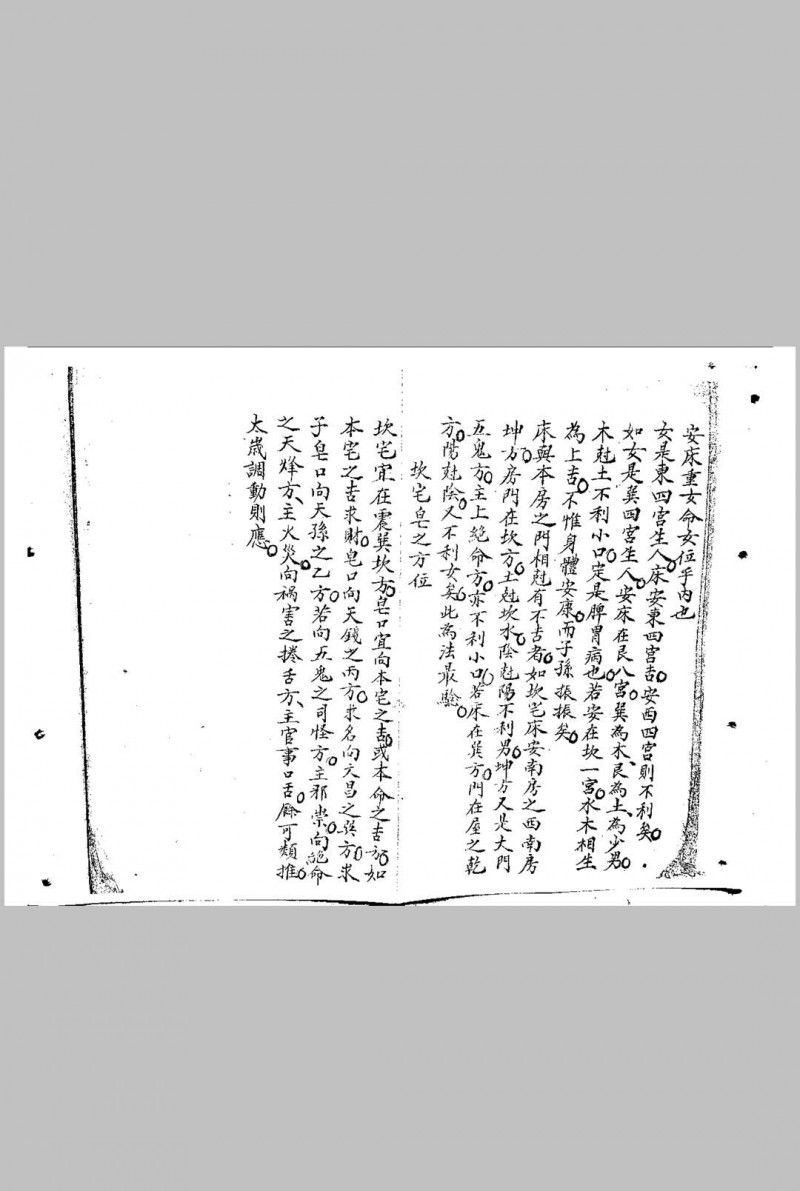 安床重女命女位乎內也
女是東四宮生人。床安東四宮吉。安西四宮則不利矣。
如女是巽四宮生人。安床在艮八宮。巽為木、艮為土、為少男。
木尅土不利小口。定是脾胃病也。若安在坎一宮。水木相生
為上吉。不惟身體安康。而子孫振振矣。
床與本房之門相尅有不吉者。如坎宅床安南房之西南房
坤方。房門在坎方。土尅坎水。陰尅陽不利男。坤方又是大門
五鬼方。主上絕命方。亦不利小口。若床在巽方。門在屋之乾
方。陽尅陰。又不利女矣。此為法最驗。
坎宅皂之方位
坎宅宜在震巽坎方。皂口宜向本宅之吉。或本命之吉方。如
本宅之吉求財。皂口向天錢之丙方。求名向文昌之巽方。求
子皂口向天孫之乙方。若向五鬼之司怪方。主邪祟。向絕命
之天烽方、主火災。向禍害之捲舌方、主官事口舌。餘可類推。
太歲調動則應。